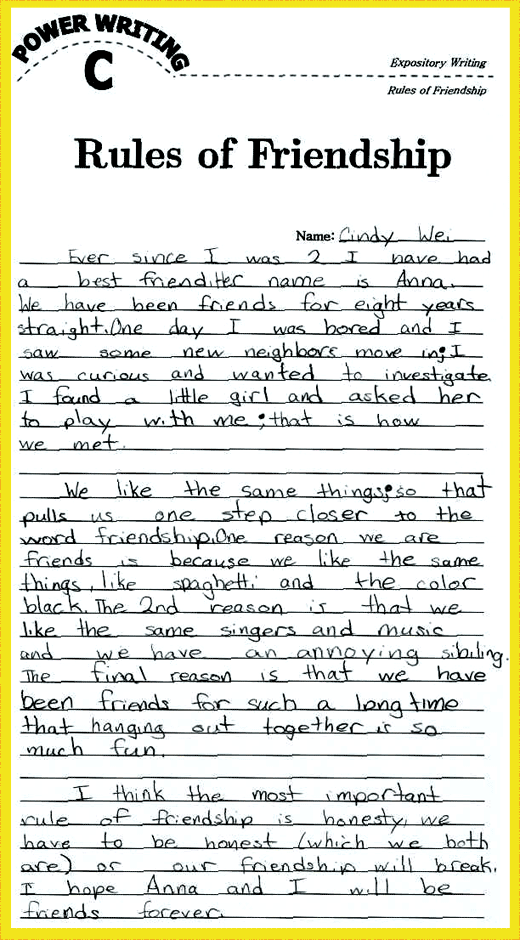 POWER WRITING
C
Expository Writing
Rules of Friendship
Rules of Friendship
Name: Cindy Wei
Ever since I was 2 I have had
a best friend. Her name is Anna.
We have been friends for eight years
straight. One day I was bored and I
saw some new neighbors move in; I
was curious and wanted to investigate.
I found a little girl and asked her
to play with me; that is how
we met.
We like the same things; so that
pulls us one step closer to the
word friendship. One reason we are
friends is because we like the same
things, like spaghetti and the color
black. The 2nd reason is that we
like the same singers and music
and we have an annoying sibiling.
The final reason is that we have
been friends for such a long time
that hanging out together is so
much fun.
I think the most important
rule of friendship is honesty, we
have to be honest (which we both
are) or our friendship will break.
I hope Anna and I will be
friends forever.